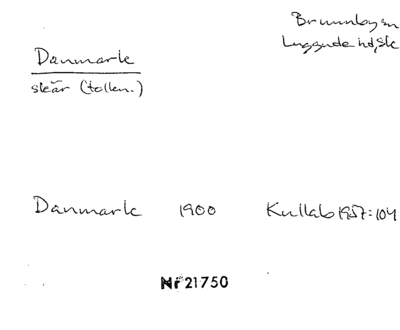 Brunnby sn
Luggude hd, Sk
Danmark
skär (tolkn.)
Danmark 1900 Kullab 1957:104
Nr 21750